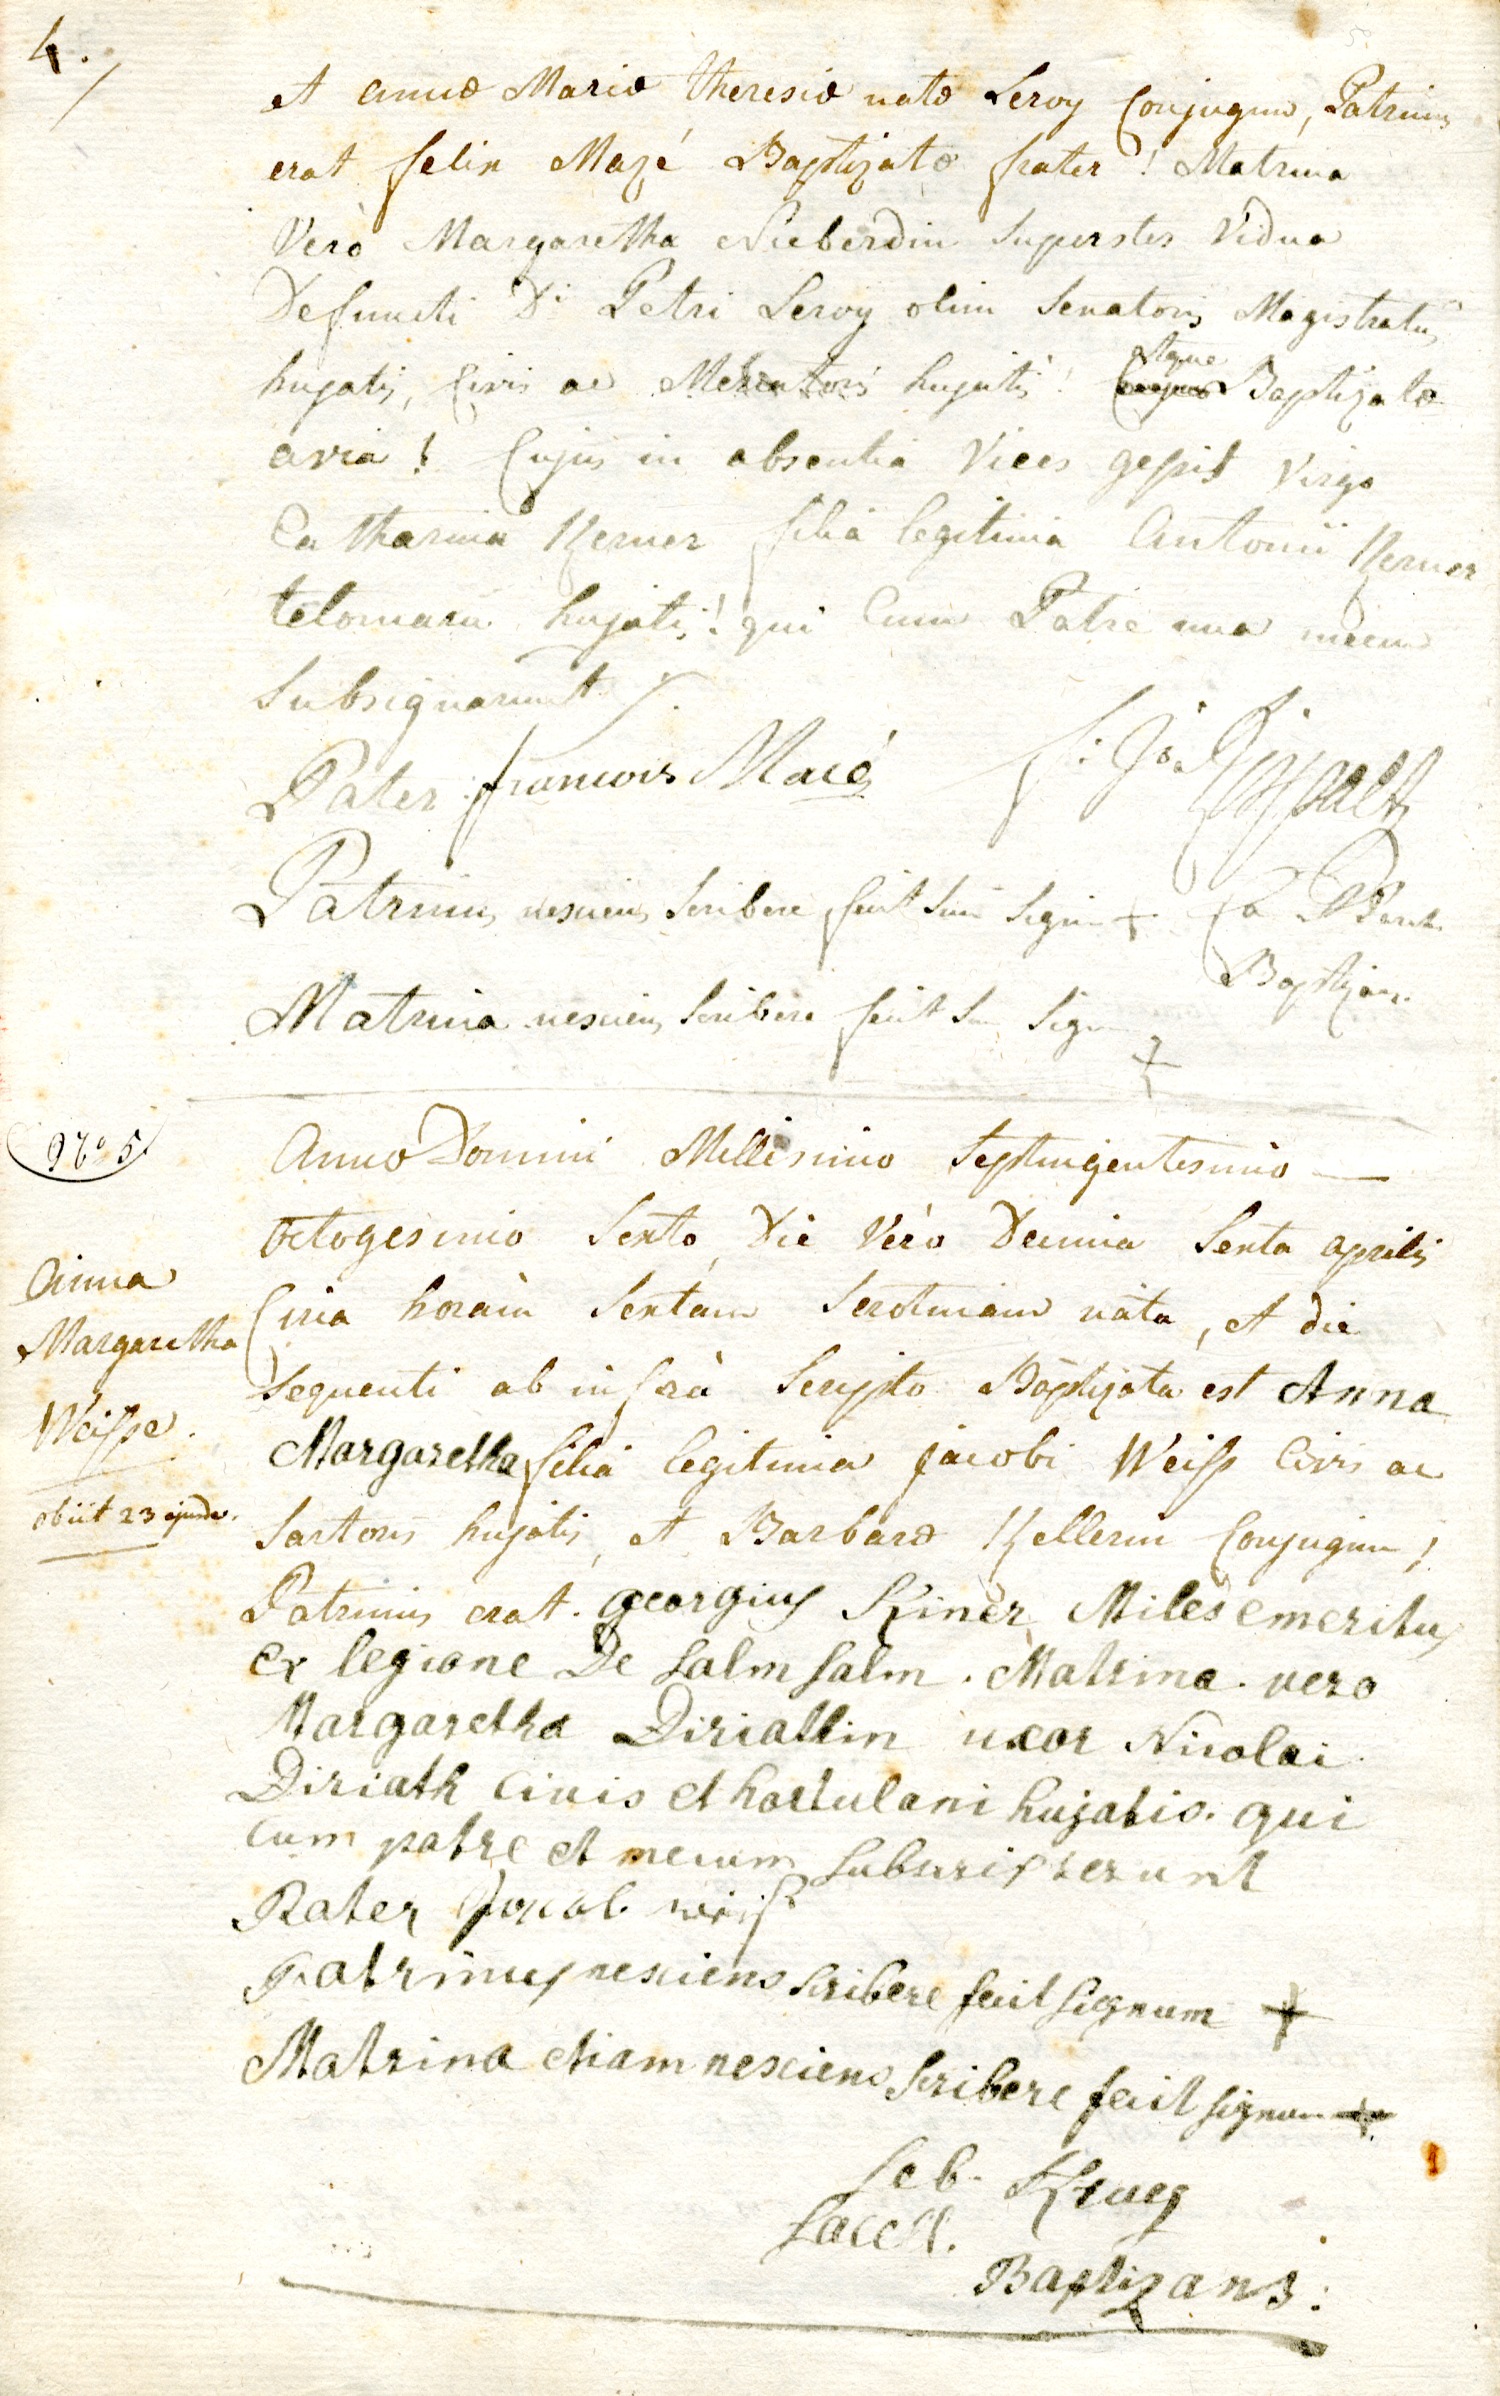 4.
et annæ Mariæ theresiæ natæ Leroy Conjugum, Patrinus
erat felix Mazé Baptizatæ frater! Matrina
Verò Margaretha Nieberdin superstes Vidua
Defuncti Di Petri Leroy olim Senatoris Magistratus
hujatis, Civis ac Mercatoris hujatis! atque Baptizatæ
avia! Cujus in absentia Vices gessit Virgo
Catharina Kerner filia legitima Antonii Kerner
telonarii hujatis! qui Cum Patre una mecum
Subsignarunt
Pater francois Macé
Patrinus nesciens scribere fecit suu signu +
Baptizans
Matrina nesciens scribere fecit su sign +
No 5
Anno Domini Millesimo septingentesimo
octogesimo sexto, Die Verò Decima sexta aprilis
Circa horam sextam serotinam nata, et die
sequenti ab infrà scripto Baptizata est Anna
Margaretha filia legitima Jacobi Weiss Civis ac
sartoris hujatis, et Barbaræ Kellerin Conjugum!
Patrinus erat. georgius Kiner Miles emeritus
ex legione De salm salm. Matrina. vero
Margaretha Diriathin uxor Nicolai
Diriath civis et hortulani hujatis. qui
cum patre et mecum subscripserunt
Pater Jacob weiss
Patrinus nesciens scribere fecit signum +
Matrina etiam nesciens scribere fecit signum +
Seb. Krug
Sacell.
Baptizans.
Anna
Margaretha
Weisse.
obiit 23 ejusde.